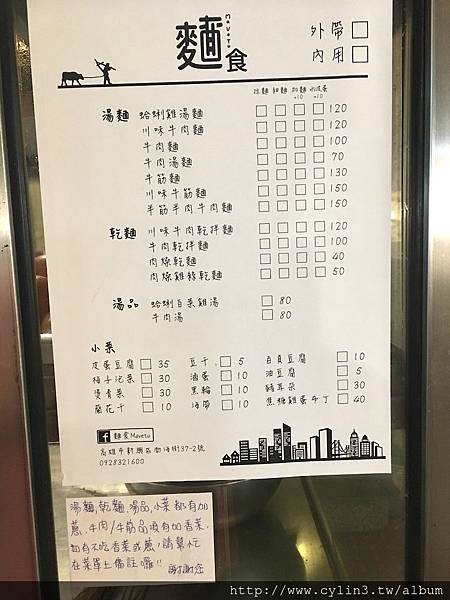 MaVeTu
麵食
外帶
內用
+10 +10
湯麵 蛤蜊雞湯麵 120
川味牛肉麵 120
牛肉麵 100
牛肉湯麵 70
牛筋麵 130
川味牛筋麵 150
半筋半肉牛肉麵 150
乾麵 川味牛肉乾拌麵 120
牛肉乾拌麵 100
肉燥乾麵 40
肉燥雞絲乾麵 50
湯品 蛤蜊白菜雞湯 80
牛肉湯 80
小菜
皮蛋豆腐 35 豆干 5 百頁豆腐 10
梅子泡菜 30 滷蛋 10 油豆腐 5
燙青菜 30 黑輪 10 豬耳朵 30
蘭花干 10 海帶 5 焦糖雞蛋布丁 40
麵食Mavetu
高雄市新興區南海街37-2號
0928321600
湯麵,乾麵,湯品,小菜都有加
蔥,牛肉/牛筋品項有加香菜.
如有不吃香菜或蔥,請幫忙
在菜單上備註囉!! 謝謝您
http://www.cylin3.tw/album